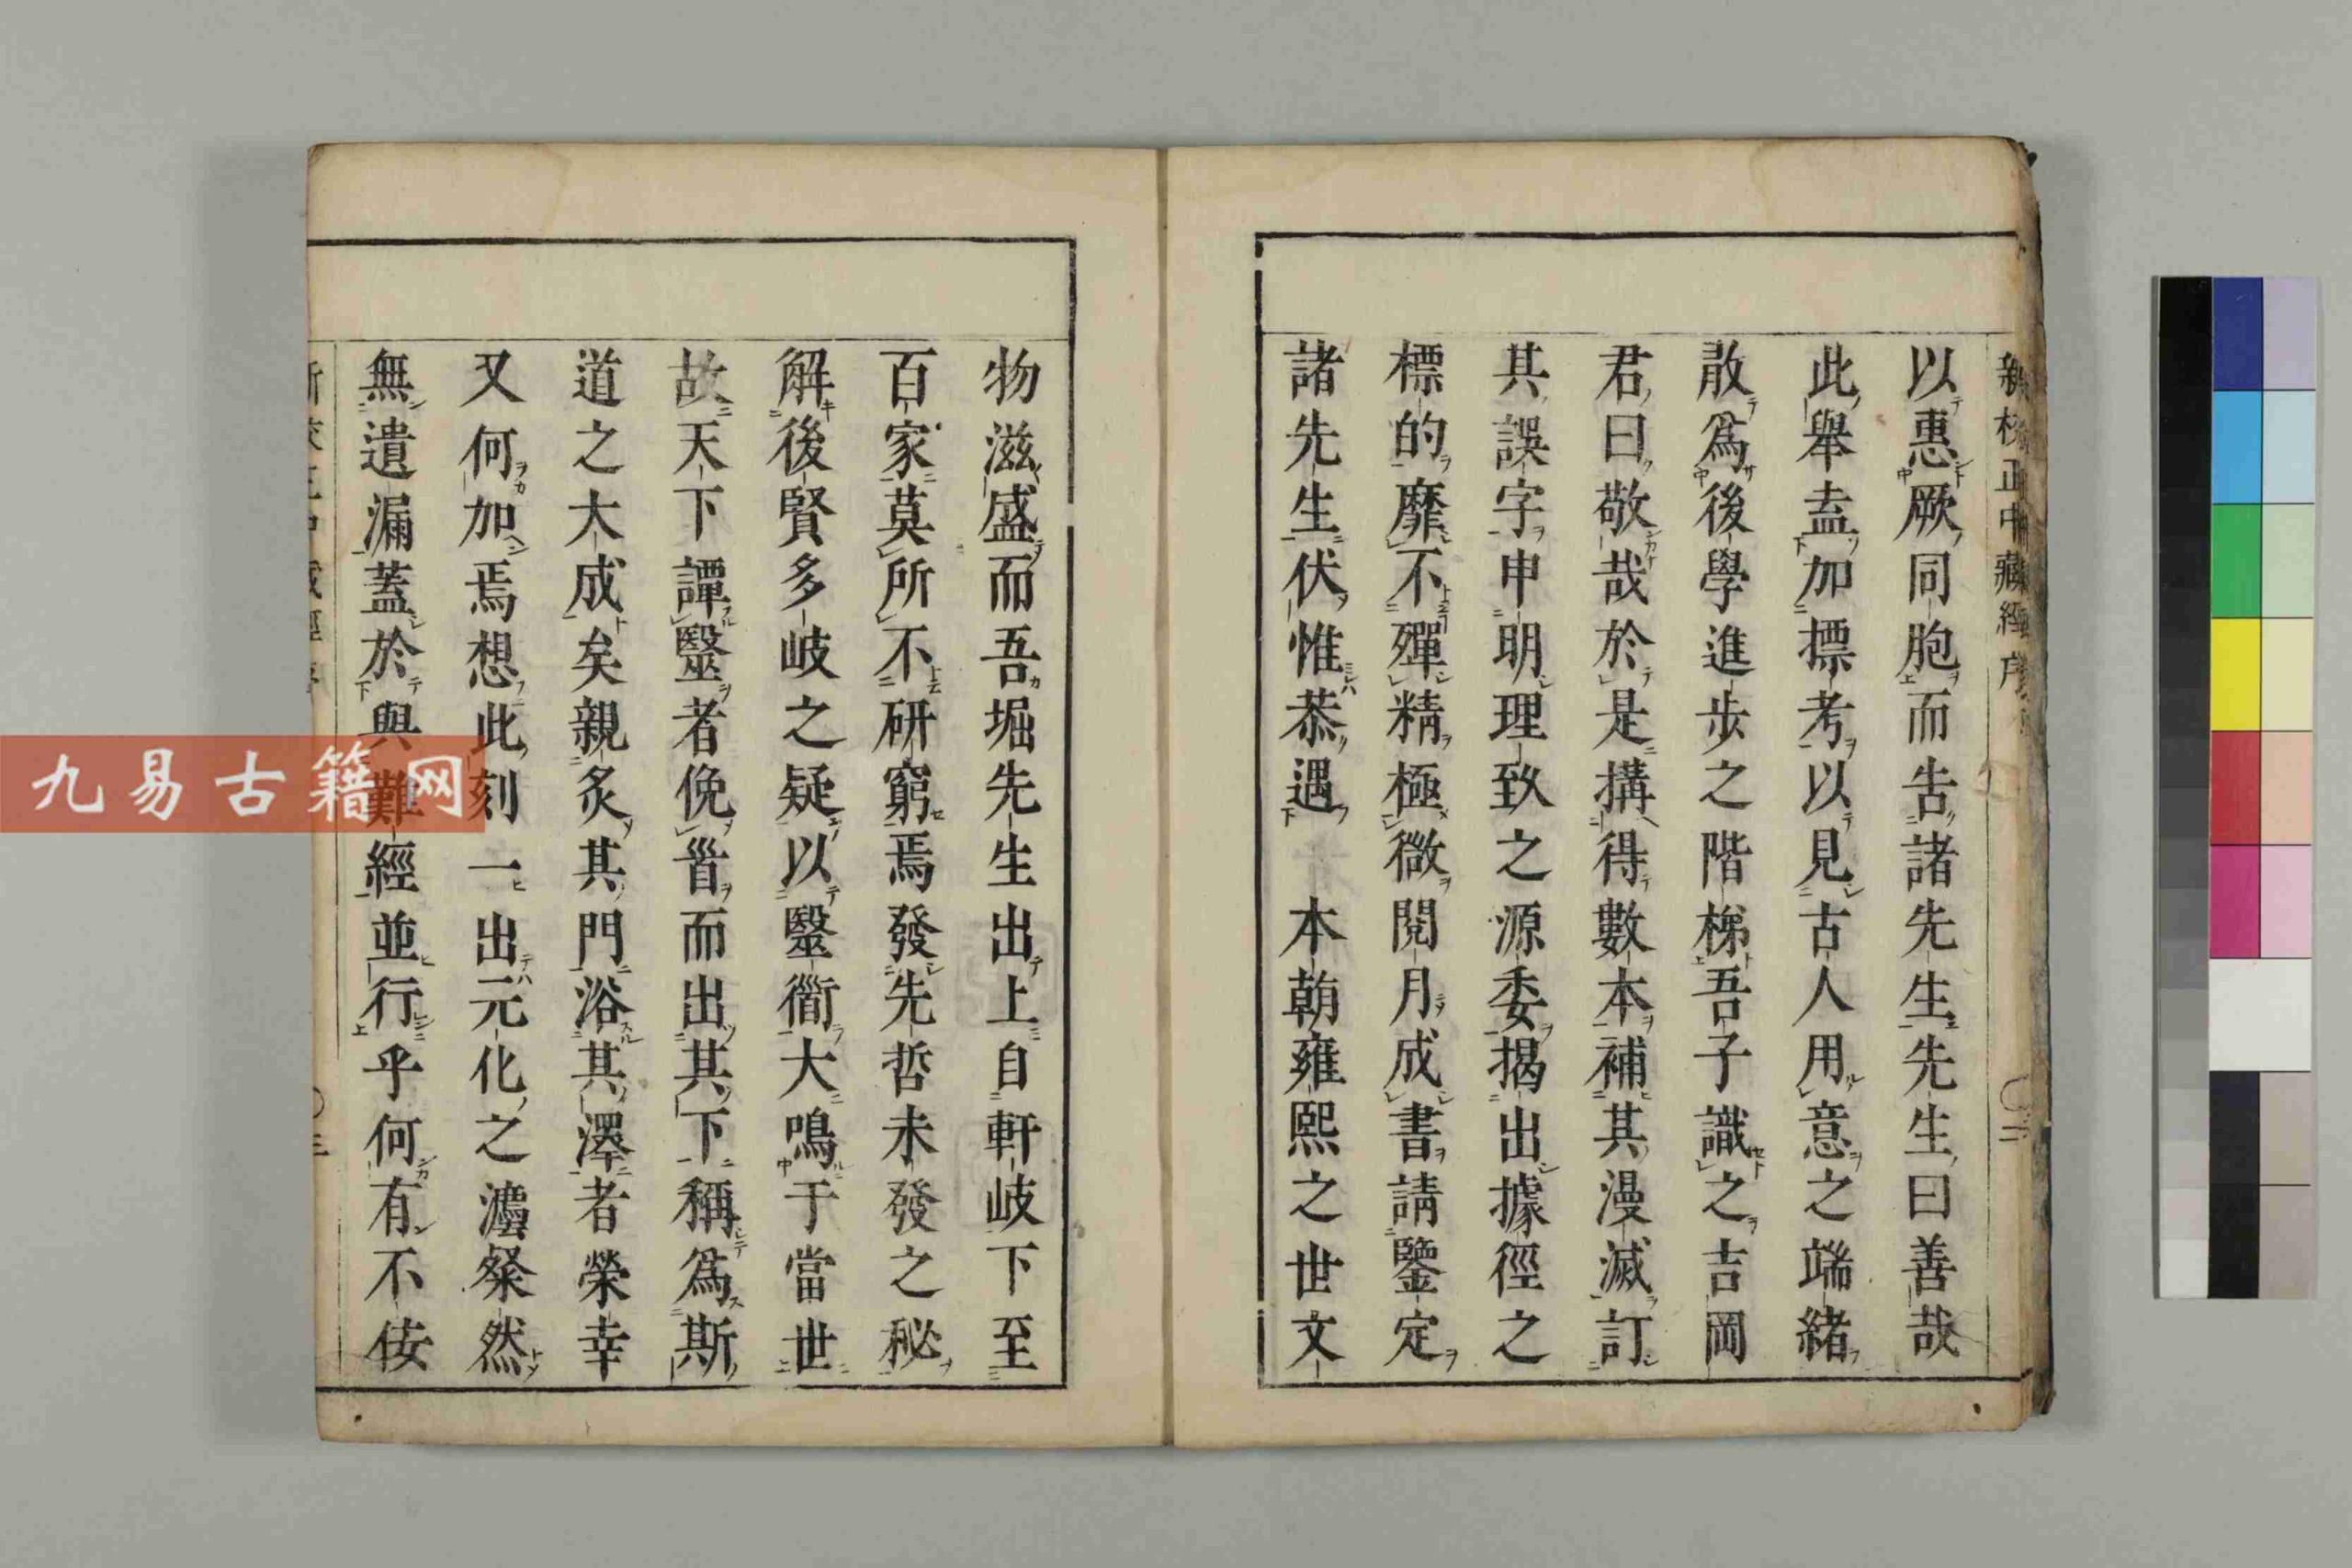 新校正中藏經序
二
以惠厥同胞而告諸先生先生曰善哉
此舉盍加標考以見古人用意之端緒
敢爲後學進步之階梯吾子識之吉岡
君曰敬哉於是搆得數本補其漫滅訂
其誤字申明理致之源委揭出據徑之
標的靡不殫精極微閱月成書請鑒定
諸先生伏惟恭遇 本朝雍熙之世文
物滋盛而吾堀先生出上自軒岐下至
百家莫所不研窮焉發先哲未發之秘
解後賢多岐之疑以毉衟大鳴于當世
故天下譚毉者俛首而出其下稱爲斯
道之大成矣親炙其門浴其澤者榮幸
又何加焉想此刻一出元化之灋粲然
無遺漏蓋於與難經並行乎何有不佞
三
九易古籍网